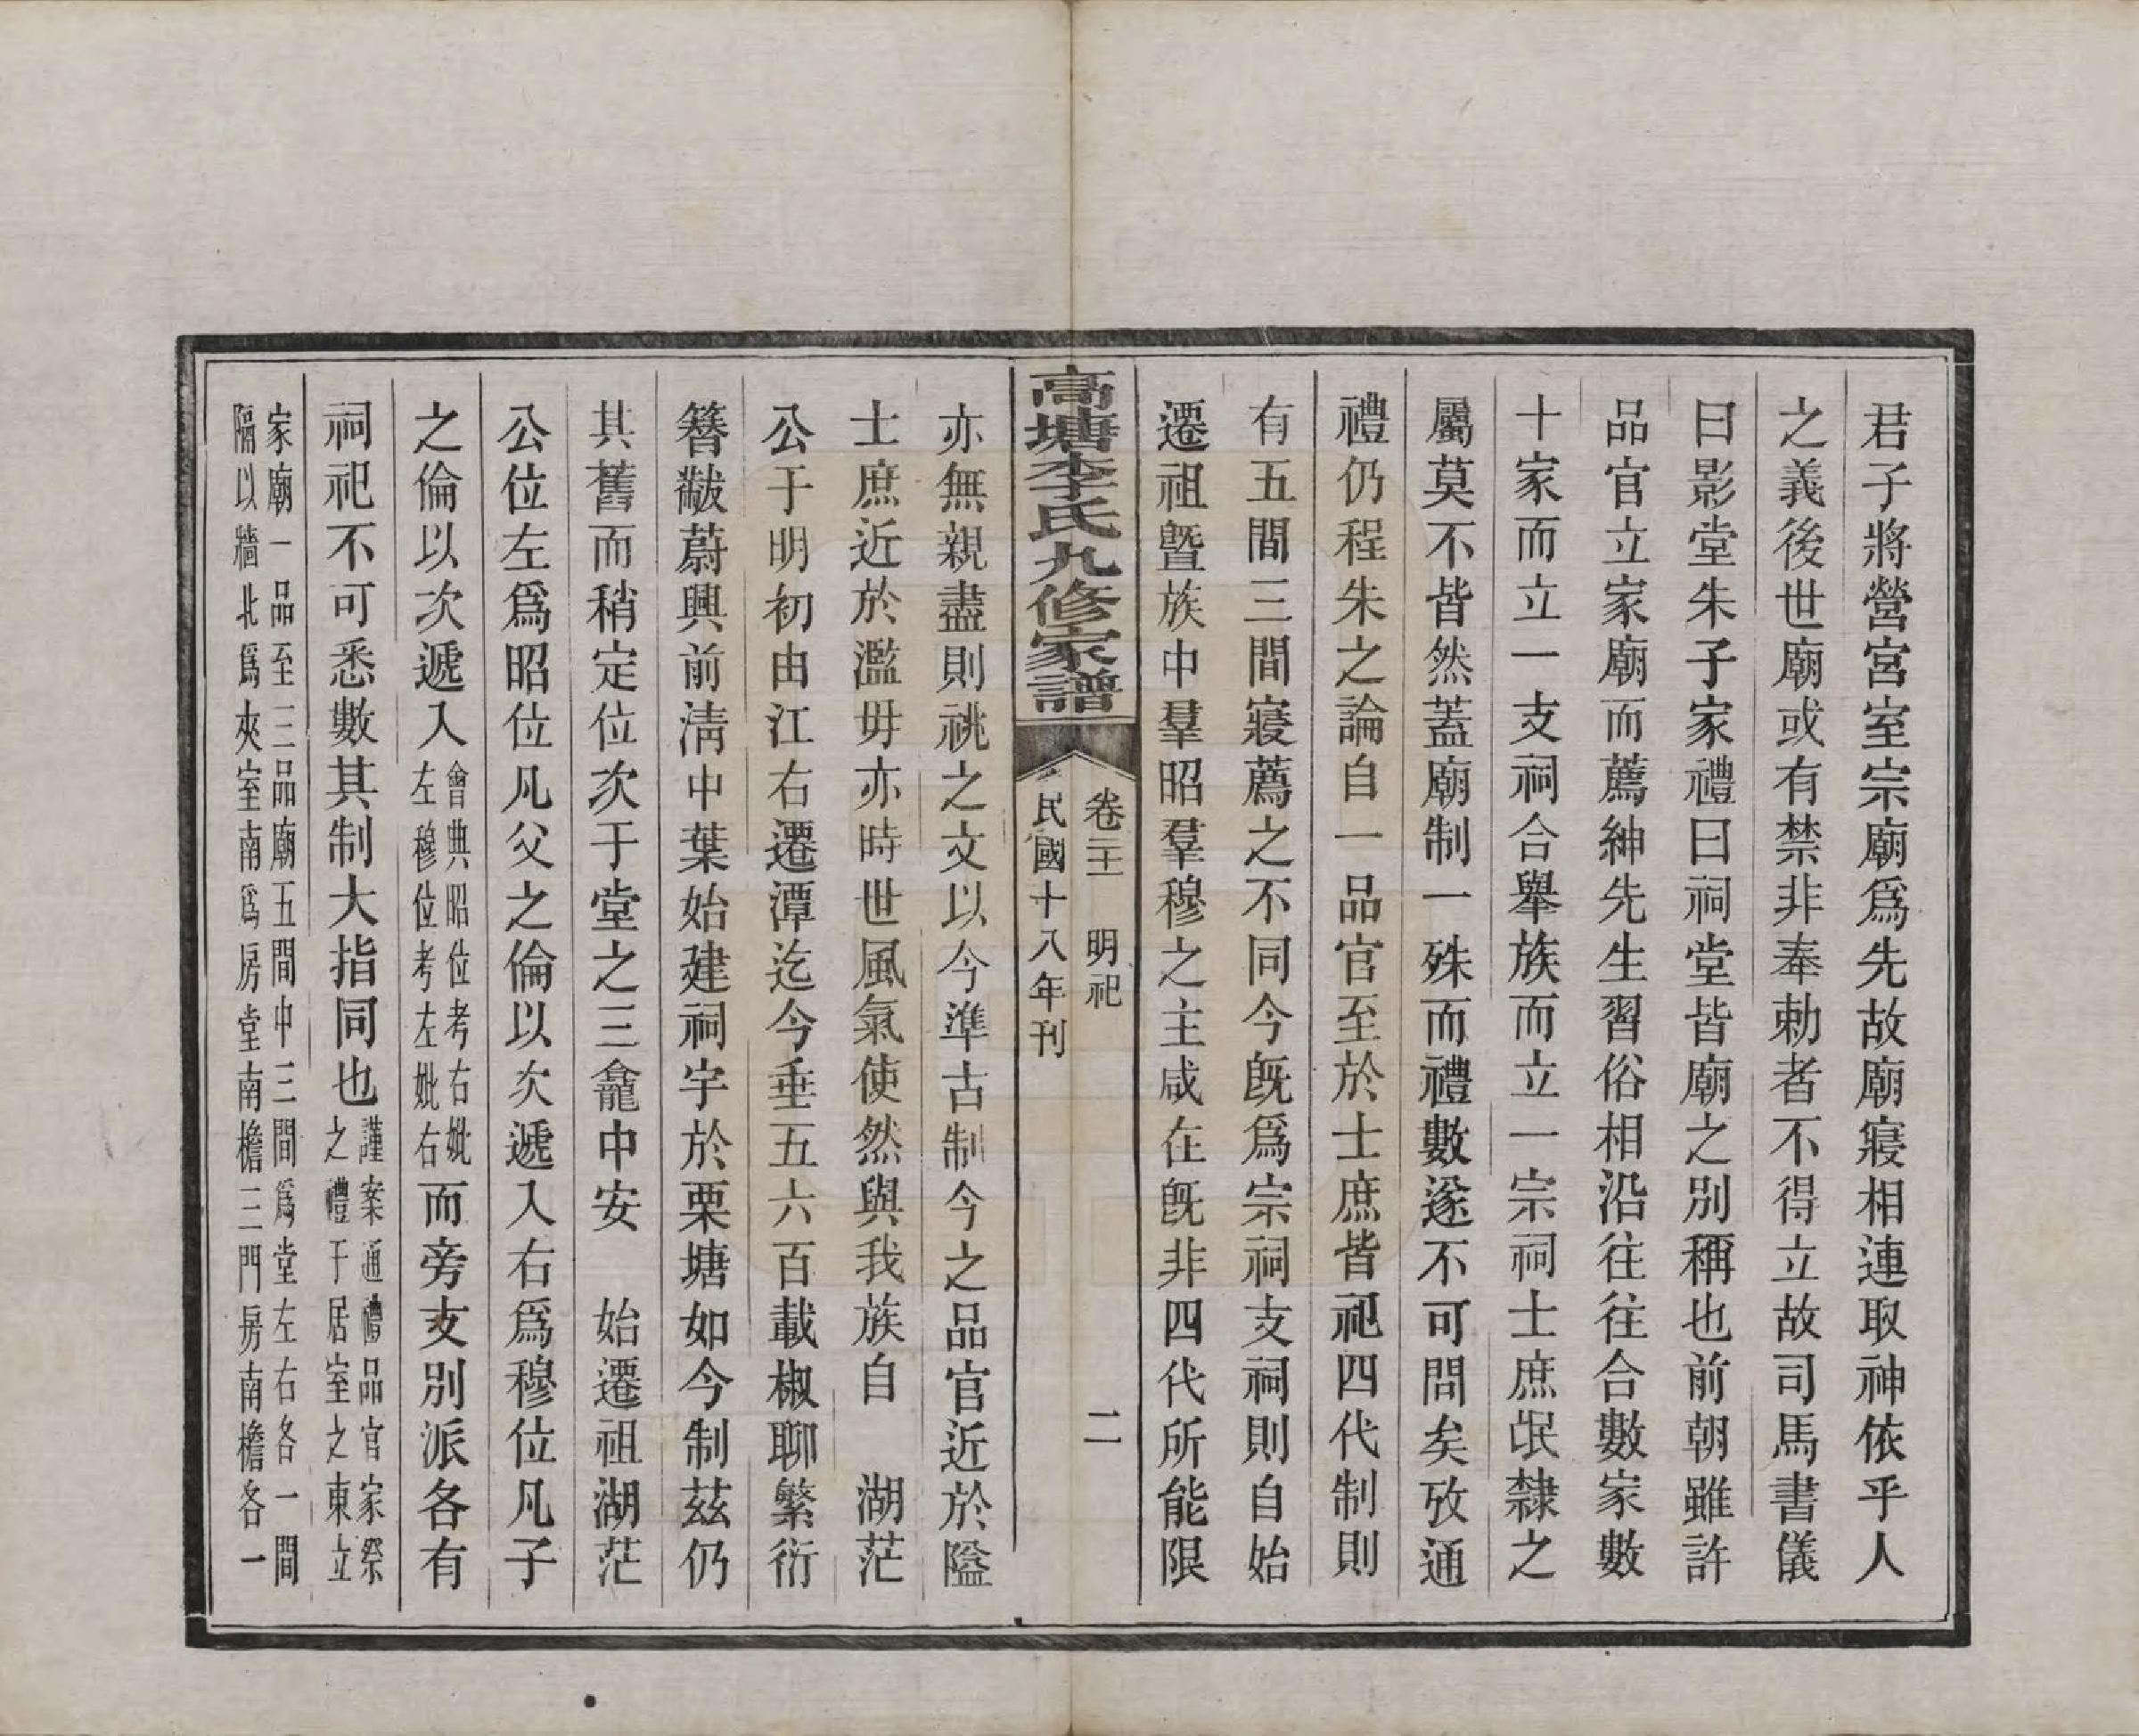 君子將營宮室宗廟爲先故廟寢相連取神依乎人
之義後世廟或有禁非奉勅者不得立故司馬書儀
曰影堂朱子家禮曰祠堂皆廟之別稱也前朝雖許
品官立家廟而薦紳先生習俗相沿往往合數家數
十家而立一支祠合舉族而立一宗祠士庶氓隸之
屬莫不皆然蓋廟制一殊而禮數遂不可問矣攷通
禮仍程朱之論自一品官至於士庶皆祀四代制則
有五間三間寢薦之不同今旣爲宗祠支祠則自始
遷祖曁族中羣昭羣穆之主咸在旣非四代所能限
高塘李氏九修家譜
卷二十一 明祀
二
民國十八年刊
亦無親盡則祧之文以今準古制今之品官近於隘
士庶近於濫毋亦時世風氣使然與我族自 湖茫
公于明初由江右遷潭迄今垂五六百載椒聊繁衍
簪黻蔚興前淸中葉始建祠宇於栗塘如今制茲仍
其舊而稍定位次于堂之三龕中安 始遷祖湖茫
公位左爲昭位凡父之倫以次遞入右爲穆位凡子
之倫以次遞入
會典昭位考右妣
左穆位考左妣右
而旁支別派各有
祠祀不可悉數其制大指同也
謹案通禮品官家祭
之禮于居室之東立
家廟一品至三品廟五間中三間爲堂左右各一間
隔以牆北爲夾室南爲房堂南檐三門房南檐各一